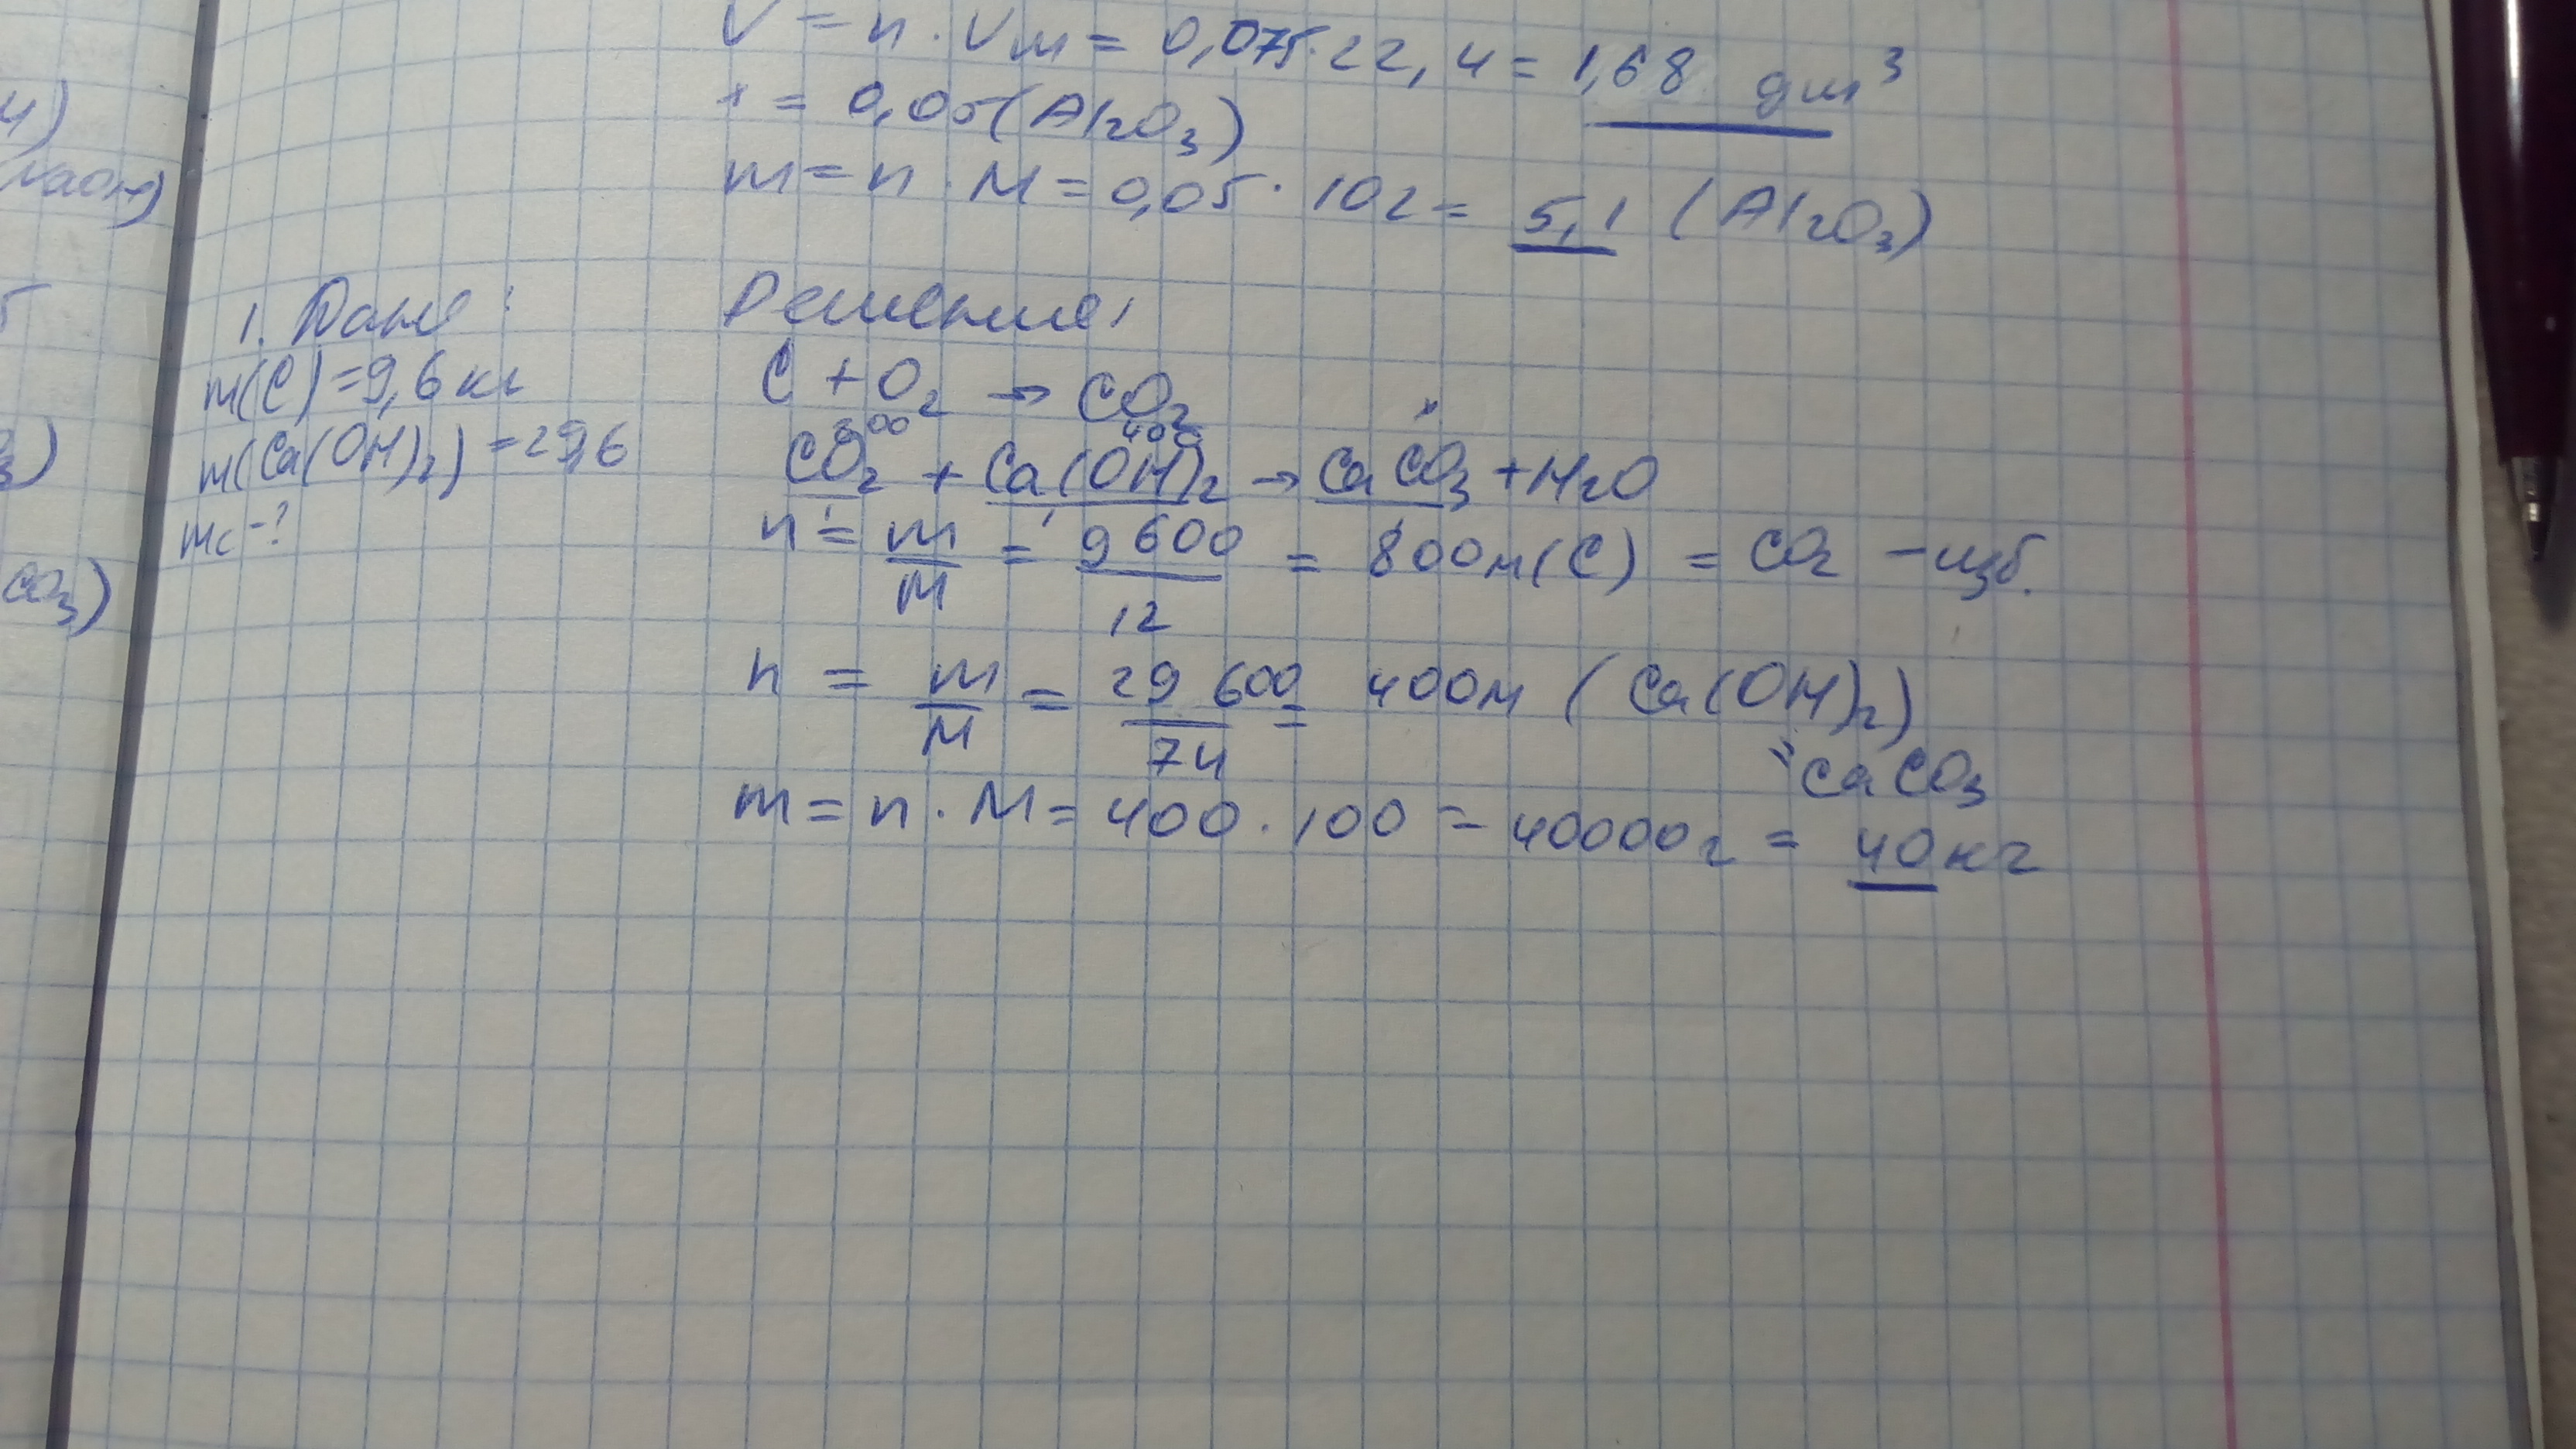 V = n · Vm = 0,075 · 22,4 = 1,68 дм³
x = 0,05 (Al₂O₃)
m = n · M = 0,05 · 102 = 5,1 (Al₂O₃)
1. Дано:
m(C) = 9,6 кг
m(Ca(OH)₂) = 29,6
mc - ?
Решение:
C + O₂ → CO₂
800 400 x
CO₂ + Ca(OH)₂ → CaCO₃ + H₂O
1 1
n = m/M = 9600/12 = 800м(C) = CO₂ - изб.
n = m/M = 29 600/74 = 400м (Ca(OH)₂)
= CaCO₃
m = n · M = 400 · 100 = 40000г = 40кг
4)
NaOH)
5
3)
CO₃)